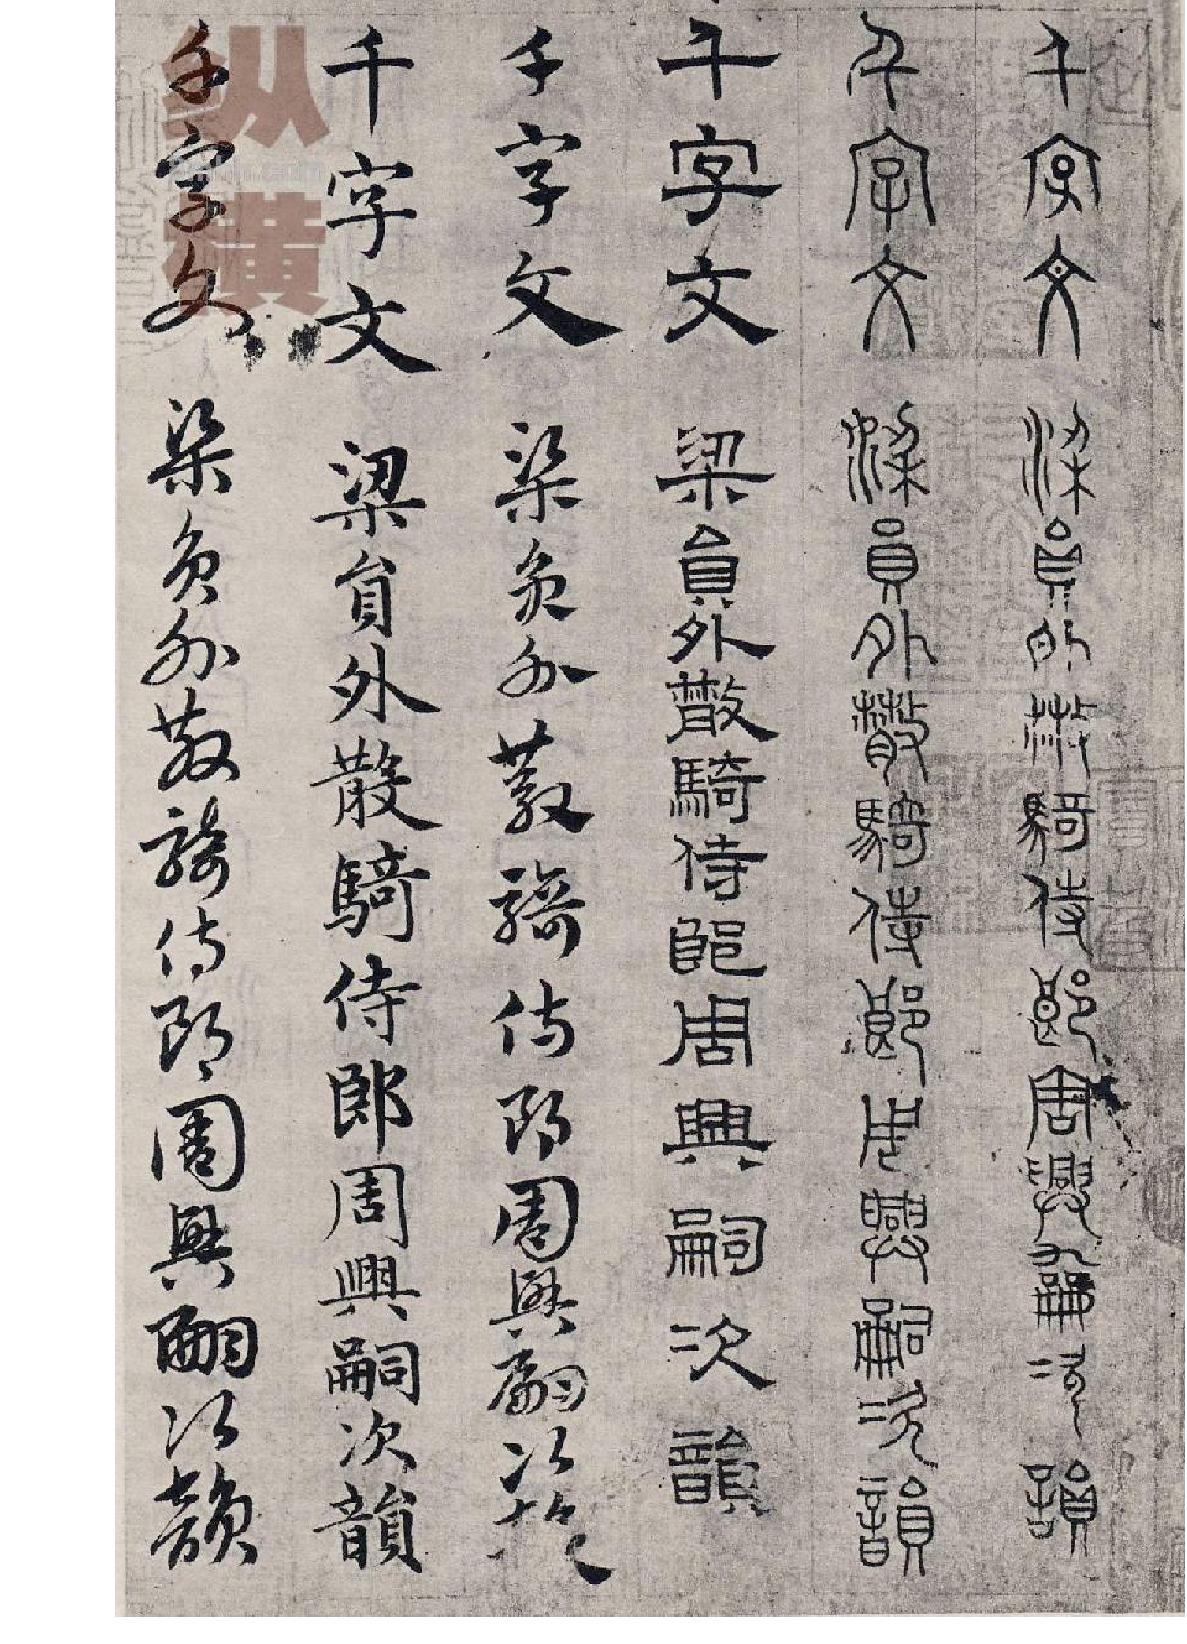 千字文 梁員外散騎侍郎周興嗣次韻
千字文 梁員外散騎侍郎周興嗣次韻
千字文 梁員外散騎侍郎周興嗣次韻
千字文 梁員外散騎侍郎周興嗣次韻
千字文 梁員外散騎侍郎周興嗣次韻
千字文 梁員外散騎侍郎周興嗣次韻
纵横